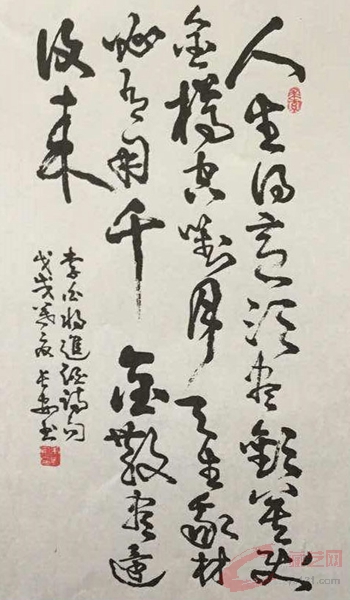 人生得意須盡歡莫使
金樽空對月天生我材
必有用千金散盡還
復来
李白將進酒詩句
戊戌
书